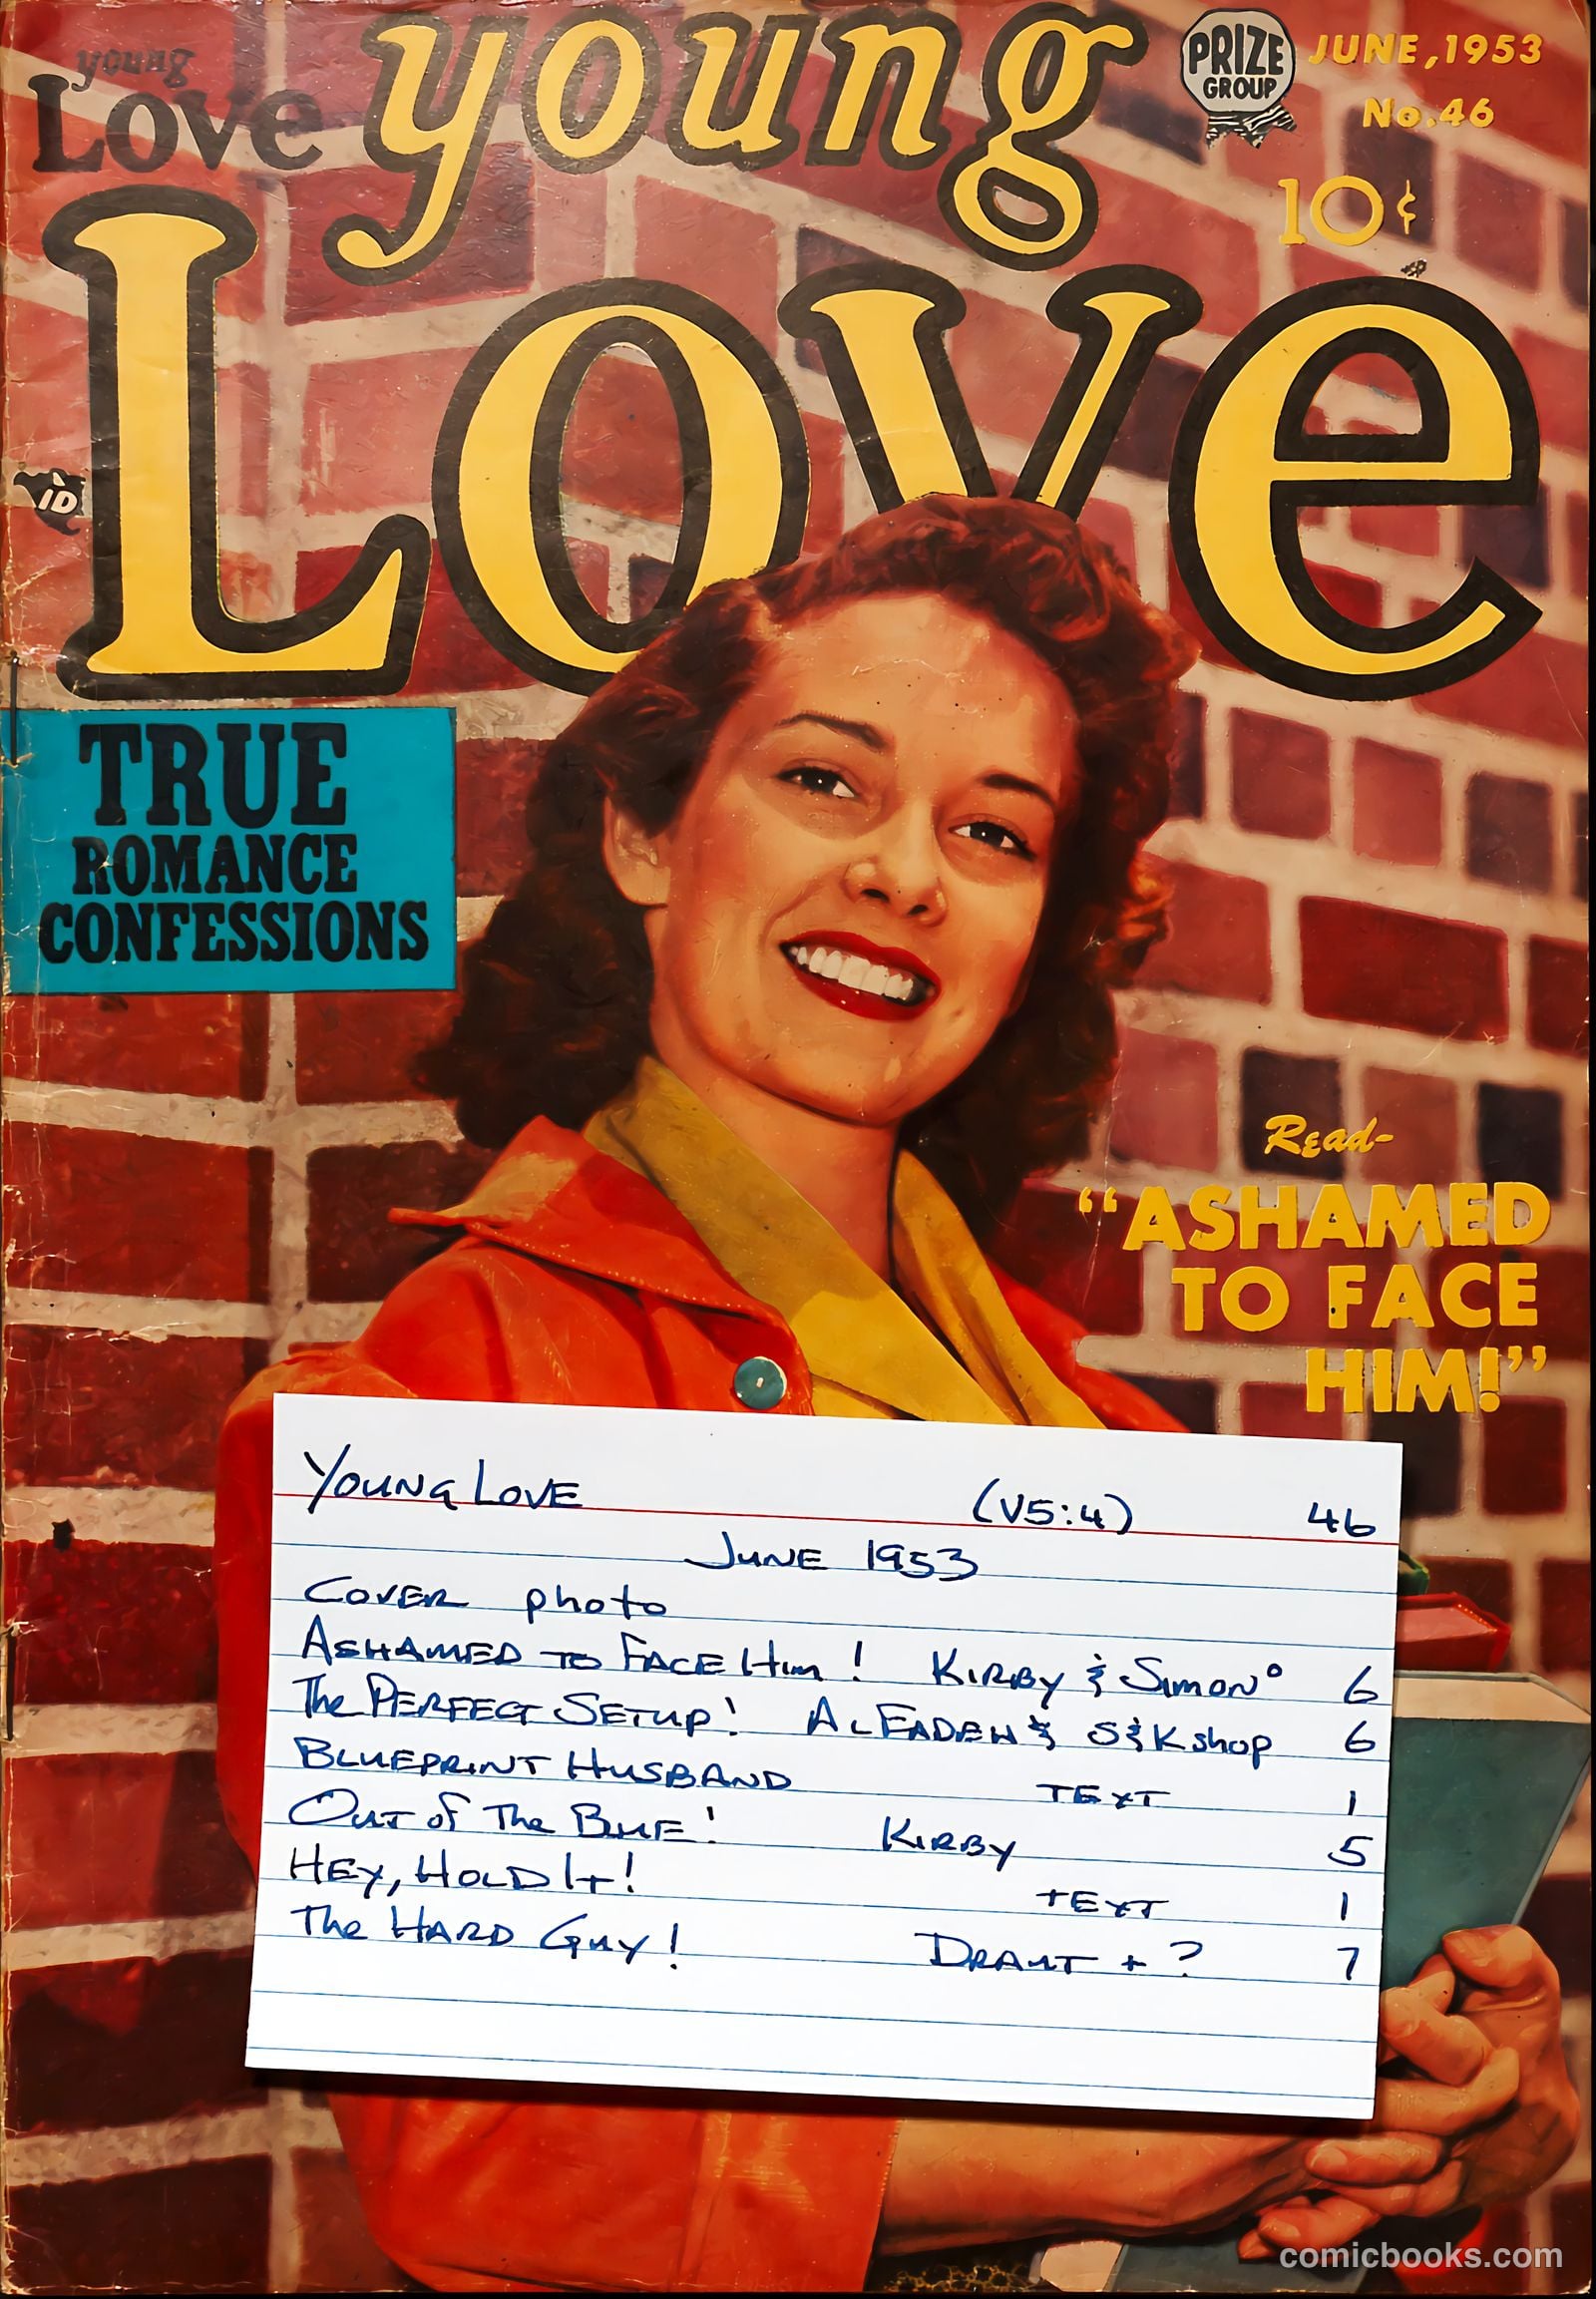 young
Love
young
Love
PRIZE
GROUP
JUNE, 1953
No. 46
10¢
ID
TRUE
ROMANCE
CONFESSIONS
Read-
“ASHAMED
TO FACE
HIM!”
YOUNG LOVE (V5:4) 46
JUNE 1953
COVER photo
ASHAMED TO FACE Him! KIRBY & Simon° 6
The PERFECT SETUP! AL EADEH & S&K shop 6
BLUEPRINT HUSBAND TEXT 1
OUT of The BLUE! KIRBY 5
HEY, HOLD It! TEXT 1
The HARD GUY! DRAUT + ? 7
comicbooks.com